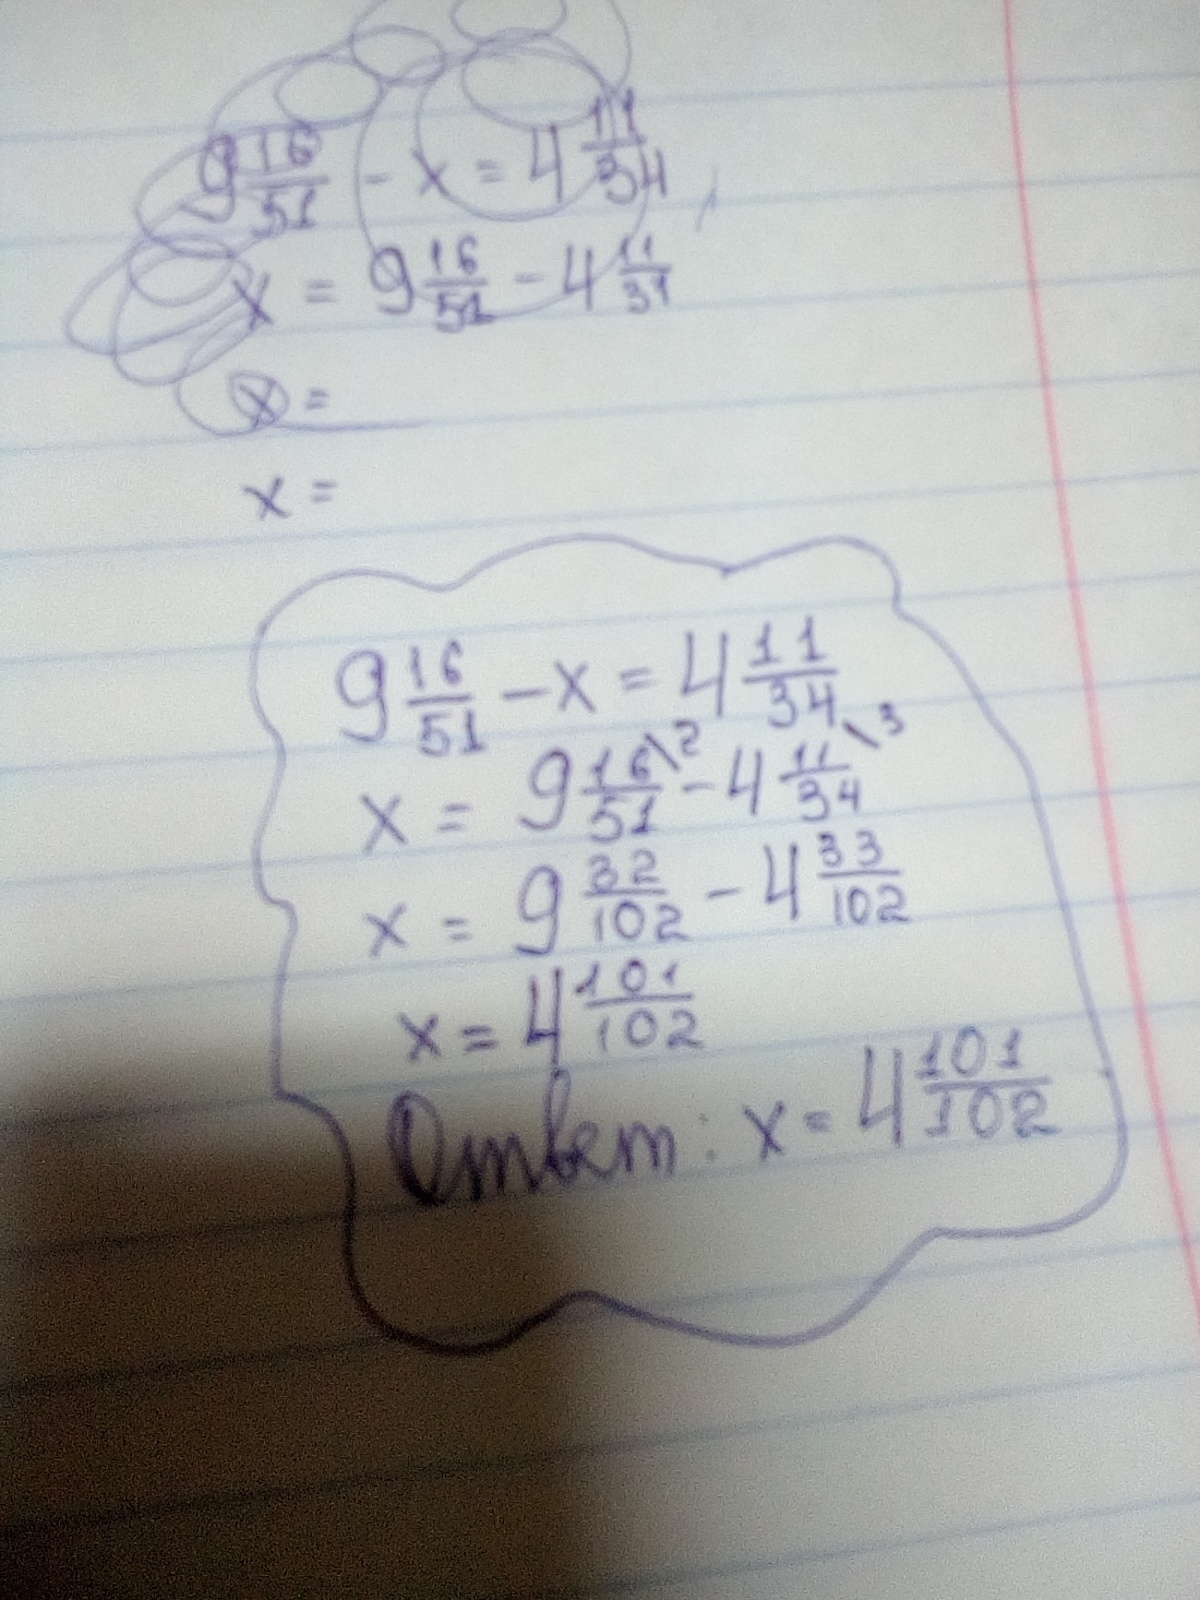 9 16/51 - x = 4 11/34
x = 9 16/51 - 4 11/34
x =
x =
9 16/51 - x = 4 11/34
x = 9 16/51 \2 - 4 11/34 \3
x = 9 32/102 - 4 33/102
x = 4 101/102
Ответ: x = 4 101/102